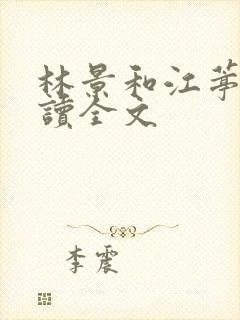 林景和江
讀全文
李震